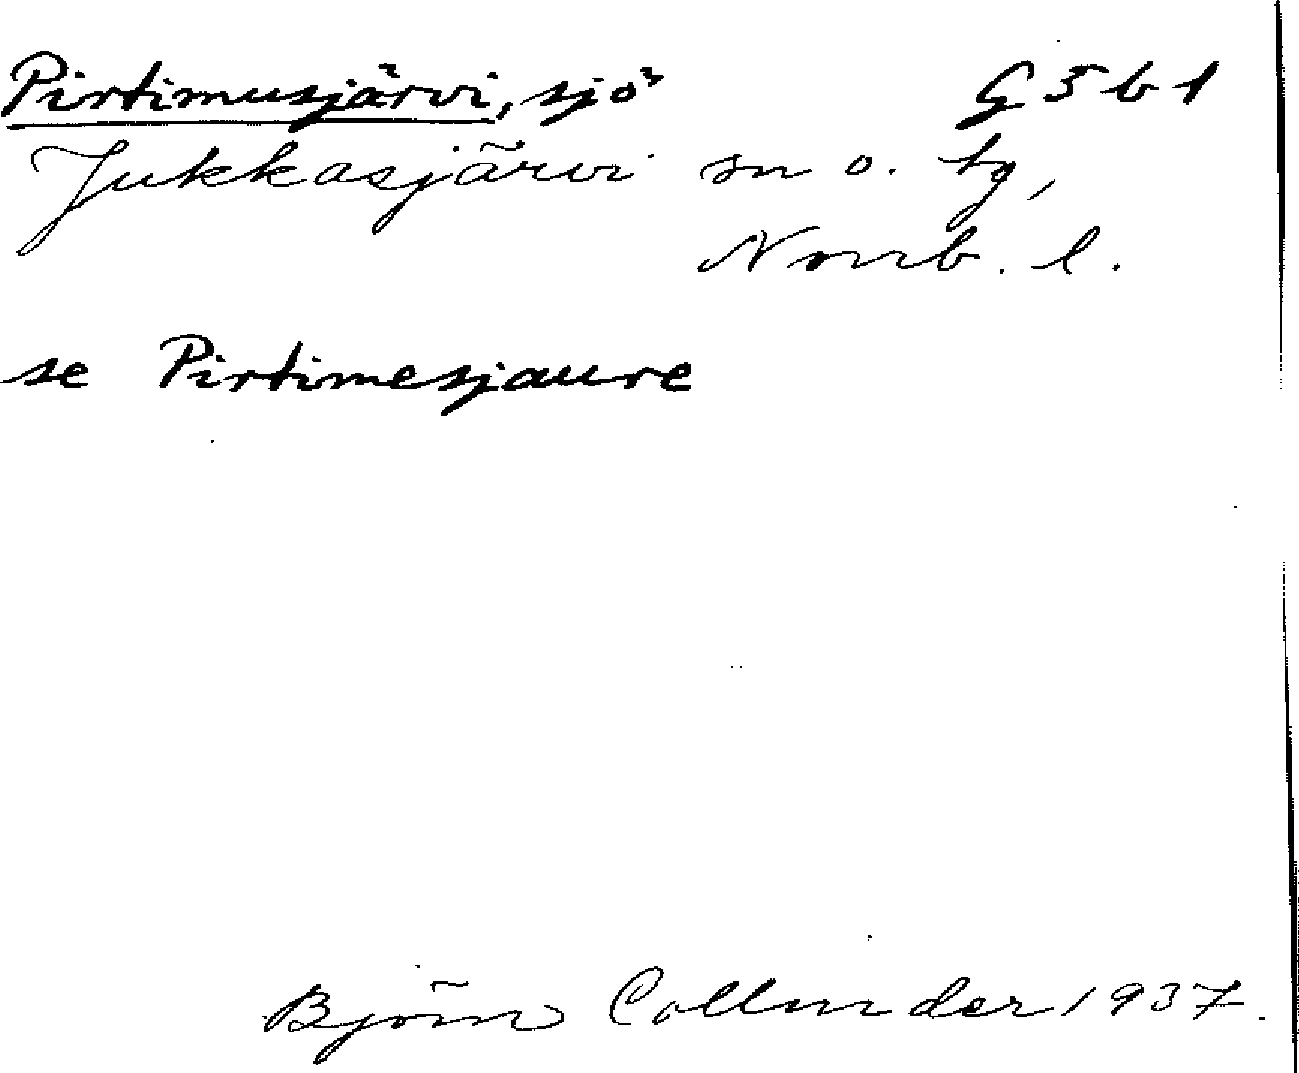 Pirtimusjärvi, sjö G 5 b 1
Jukkasjärvi sn o. tg,
Norrb. l.
se Pirtimesjaure
Björn Collinder 1937.